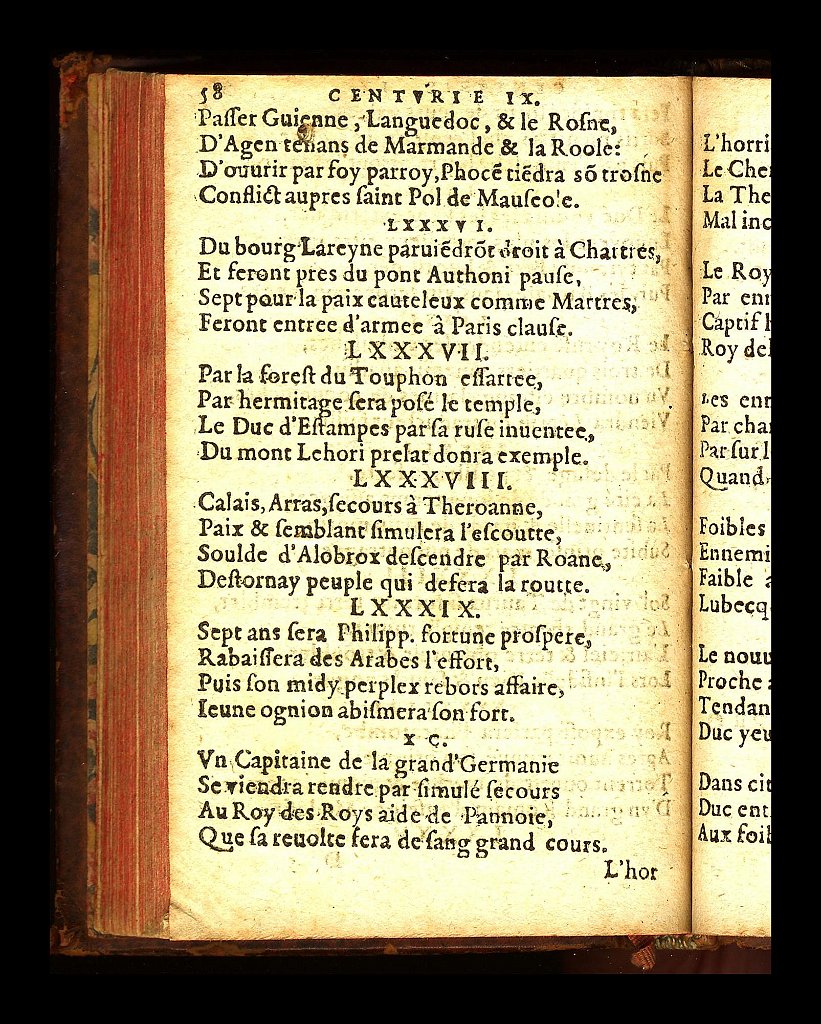 58 CENTVRIE IX.
Paſſer Guienne, Languedoc, & le Roſne,
D'Agen tenans de Marmande & la Roole:
D'ouurir par foy parroy, Phocẽ tiẽdra sõ troſne
Conflict aupres ſaint Pol de Mauſeole.
LXXXVI.
Du bourg Lareyne paruiẽdrõt droit à Chartres,
Et feront pres du pont Authoni pauſe,
Sept pour la paix cauteleux comme Martres,
Feront entree d'armee à Paris clauſe.
LXXXVII.
Par la foreſt du Touphon eſſartee,
Par hermitage ſera poſé le temple,
Le Duc d'Eſtampes par ſa ruſe inuentee,
Du mont Lehori prelat donra exemple.
LXXXVIII.
Calais, Arras, ſecours à Theroanne,
Paix & ſemblant ſimulera l'eſcoutte,
Soulde d'Alobrox deſcendre par Roane,
Deſtornay peuple qui defera la routte.
LXXXIX.
Sept ans ſera Philipp. fortune proſpere,
Rabaiſſera des Arabes l'effort,
Puis ſon midy perplex rebors affaire,
Ieune ognion abiſmera ſon fort.
XC.
Vn Capitaine de la grand Germanie
Se viendra rendre par ſimulé ſecours
Au Roy des Roys aide de Pannoie,
Que ſa reuolte fera de ſang grand cours.
L'hor
L'horri
Le Che
La The
Mal inc
Le Roy
Par enn
Captif
Roy de
Les enn
Par cha
Par ſur
Quand
Foibles
Ennemi
Faible
Lubecq
Le nouu
Proche
Tendan
Duc yeu
Dans cit
Duc ent
Aux foi